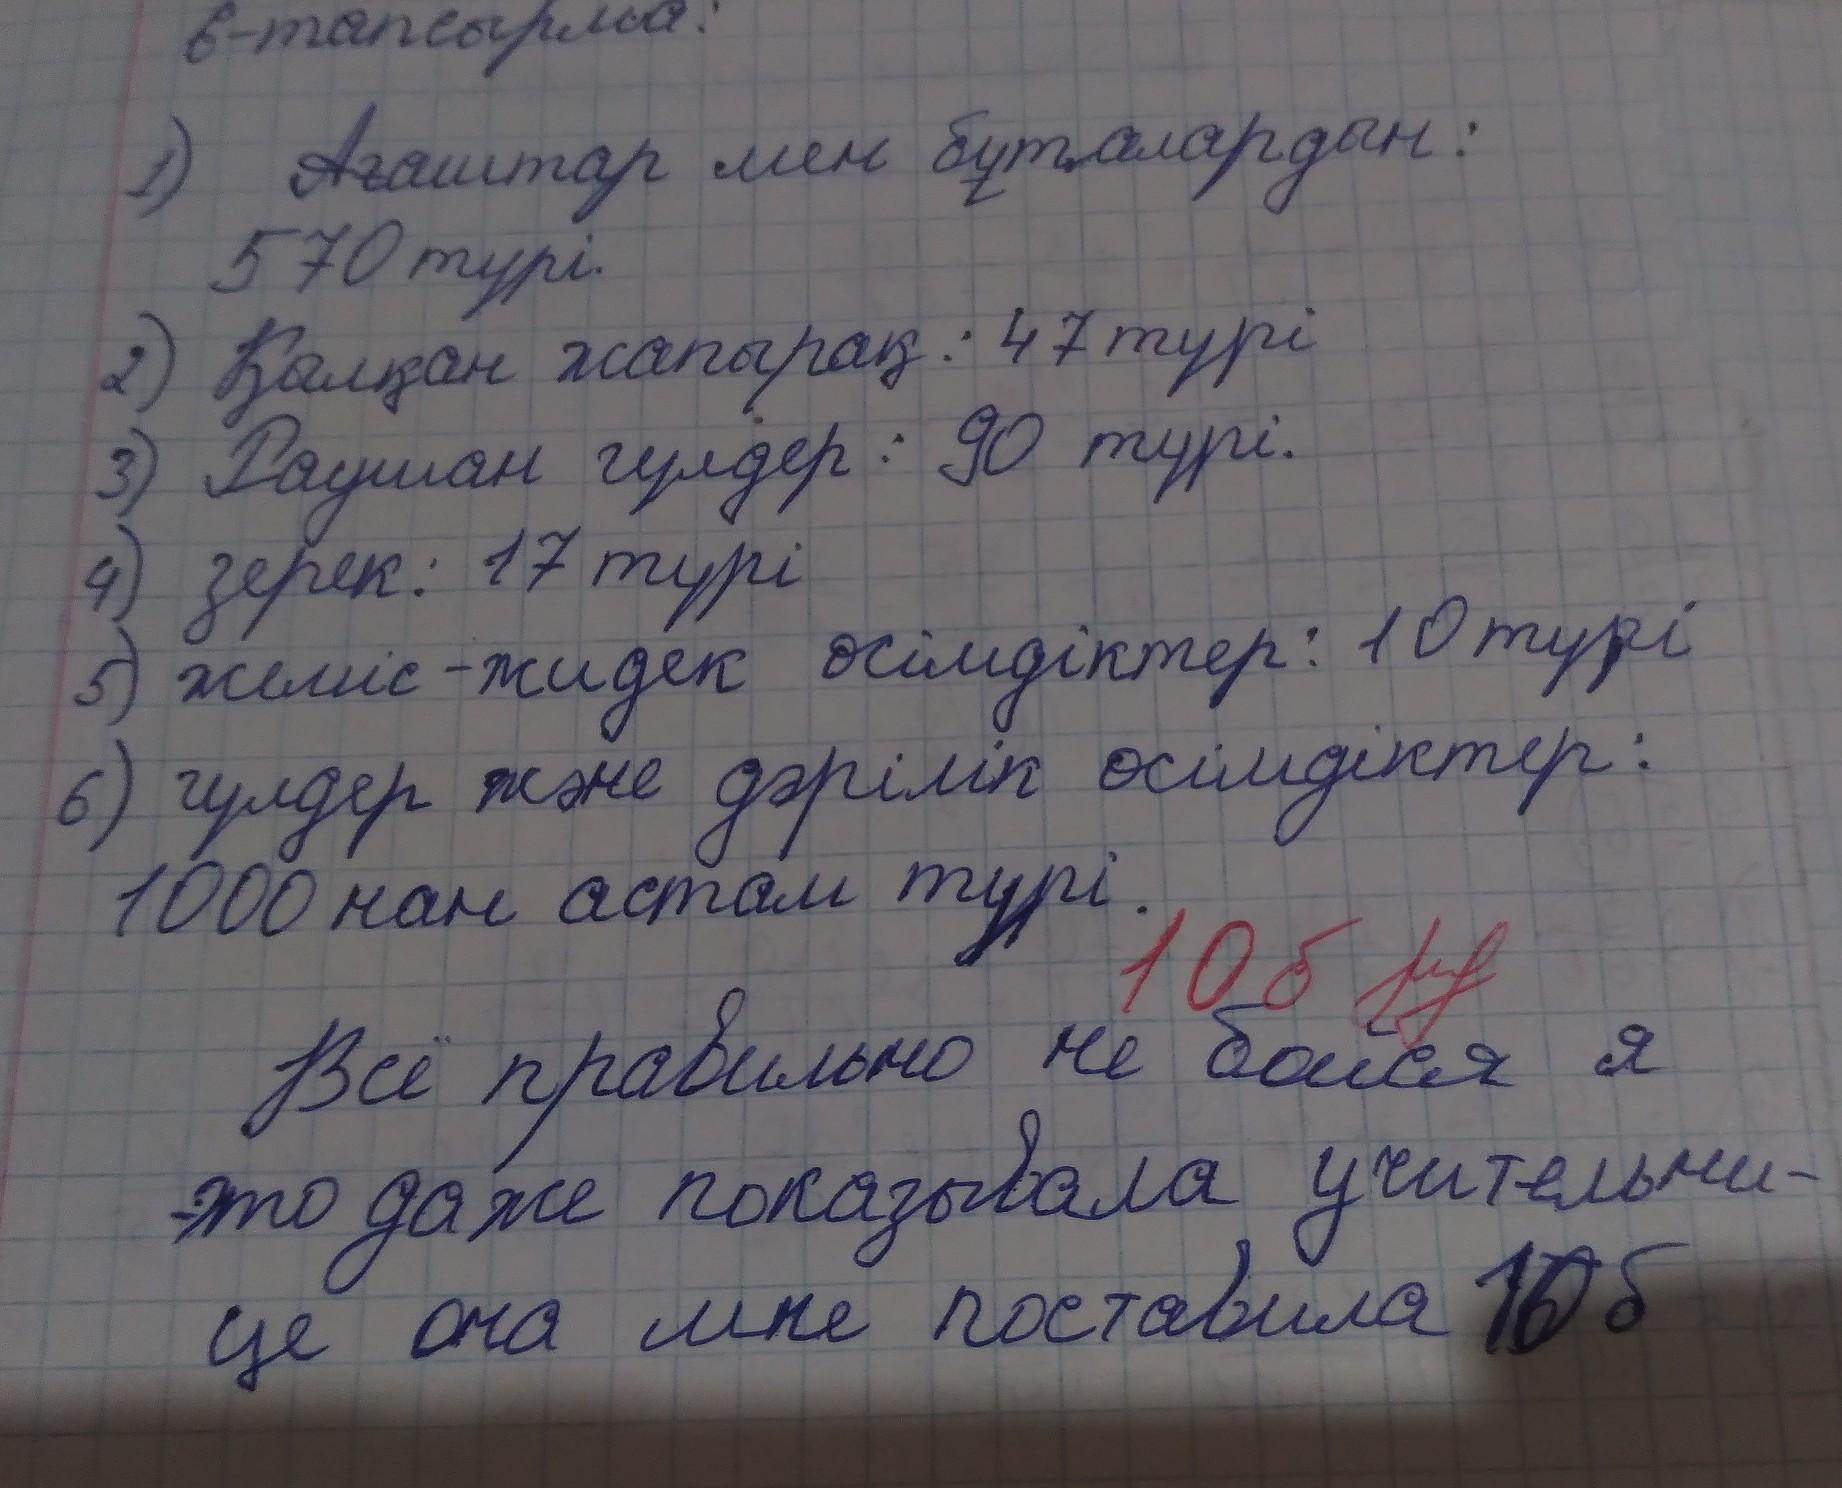 6-тапсырма:
1) Ағаштар мен бұталардын:
570 түрі.
2) Қалқан жапырақ: 47 түрі
3) Раушан гүлдер: 90 түрі.
4) зерек: 17 түрі
5) жеміс-жидек өсімдіктер: 10 түрі
6) гүлдер және дәрілік өсімдіктер:
1000 нан астам түрі.
10 б
Всё правильно не бойся я
это даже показывала учительни-
це она мне поставила 10 б